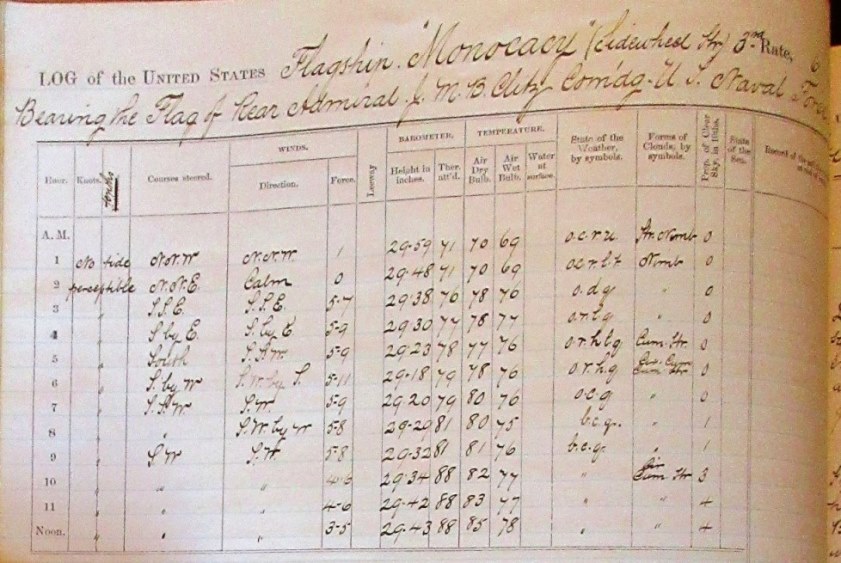 LOG of the UNITED STATES Flagship "Monocacy" (Sidewheel Str) 3rd Rate, 6
Bearing the Flag of Rear Admiral J. M. B. Clitz Com'dg U. S. Naval Force
WINDS. BAROMETER. TEMPERATURE.
Hour. Knots. Tenths Courses steered. Direction. Force. Leeway Height in inches. Ther. att'd. Air Dry Bulb. Air Wet Bulb. Water at surface. State of the Weather, by symbols. Forms of Clouds, by symbols. Prop. of Clear Sky, in 10ths. State of the Sea. Record of the
A. M.
1 No tide N.N.W N.N.W 1 29.59 71 70 69 o.c.r.u Str. Nimb 0
2 perceptible N.N.E. Calm 0 29.48 71 70 69 o.c.r.l.t Nimb 0
3 " S.S.E. S.S.E. 5-7 29.38 76 78 76 o.d.q " 0
4 " S by E. S. by E 5-9 29.30 77 78 77 o.r.t.q " 0
5 " South S.S.W. 5-9 29.23 78 77 76 o.r.h.t.q Cum. Str. 0
6 " S. by W S.W. by S. 5-11 29.18 79 78 76 o.r.h.q Cum Str 0
7 " S.S.W. S.W. 5-9 29.20 79 80 76 o.c.q " 0
8 " " S.W. by W 5-8 29.29 81 80 75 b.c.q. " 1
9 " S.W S.W. 5-8 29.32 81 81 76 b.c.q. " 1
10 " " " 4-6 29.34 88 82 77 " Cir Cum Str 3
11 " " " 4-6 29.42 88 83 77 " " 4
Noon. " " " 3-5 29.43 88 85 78 " " 4